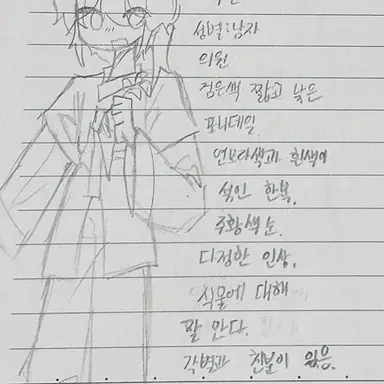 성별:남자
의원
검은색 짧고 낮은
포니테일.
연보라색과 흰색이
섞인 한복.
주황색 눈.
다정한 인상.
식물에 대해
잘 안다.
각별과 친분이 있음.